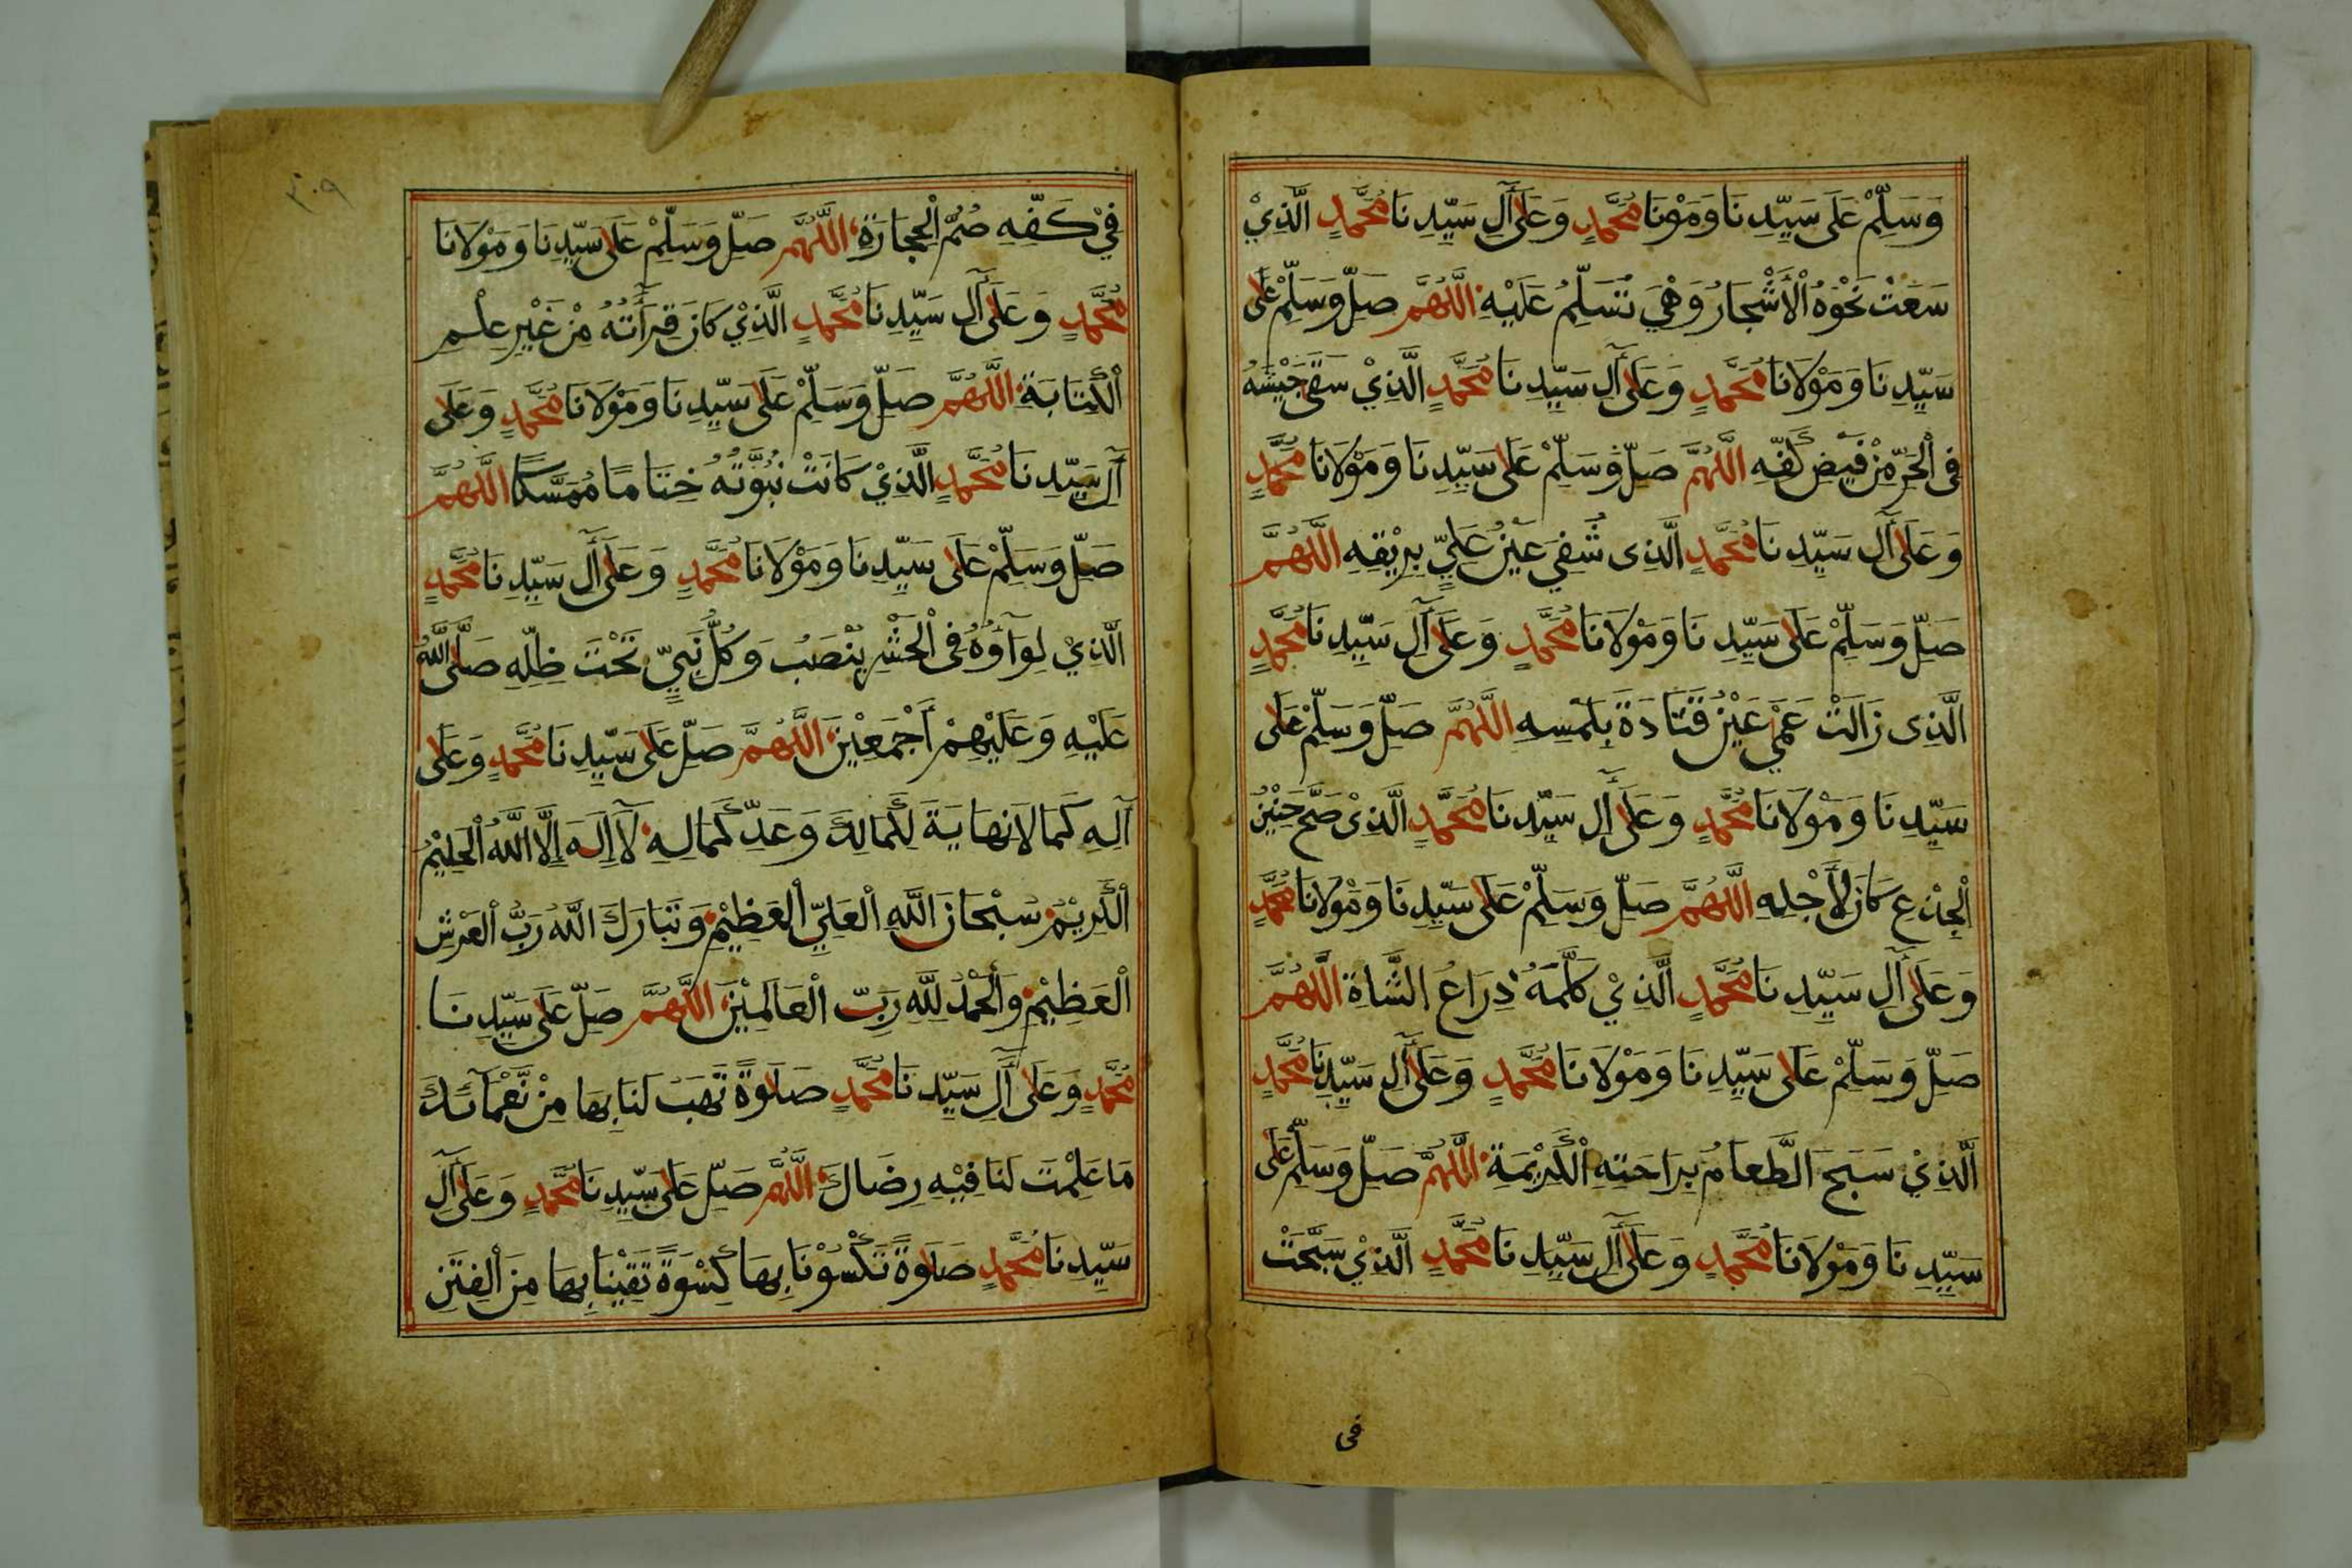 وَسَلِّمْ عَلَى سَيِّدِنَا وَمَوْنَا مُحَمَّدٍ وَعَلَى آلِ سَيِّدِنَا مُحَمَّدٍ الَّذِيْ
سَعَتْ نَحْوَهُ الْأَشْجَارُ وَهْيَ تُسَلِّمُ عَلَيْهِ اللَّهُمَّ صَلِّ وَسَلِّمْ عَلَى
سَيِّدِنَا وَمَوْلَانَا مُحَمَّدٍ وَعَلَى آلِ سَيِّدِنَا مُحَمَّدٍ الَّذِيْ سَقَى جَيْشَهُ
فِى الْحَرِّ مِنْ فَيْضِ كَفِّهِ اللَّهُمَّ صَلِّ وَسَلِّمْ عَلَى سَيِّدِنَا وَمَوْلَانَا مُحَمَّدٍ
وَعَلَى آلِ سَيِّدِنَا مُحَمَّدٍ الَّذِى شُفِيَ عَيْنُ عَلِيٍّ بِرِيْقِهِ اللَّهُمَّ
صَلِّ وَسَلِّمْ عَلَى سَيِّدِنَا وَمَوْلَانَا مُحَمَّدٍ وَعَلَى آلِ سَيِّدِنَا مُحَمَّدٍ
الَّذِى زَالَتْ عَمْيُ عَيْنِ قَتَادَةَ بِلَمْسِهِ اللَّهُمَّ صَلِّ وَسَلِّمْ عَلَى
سَيِّدِنَا وَمَوْلَانَا مُحَمَّدٍ وَعَلَى آلِ سَيِّدِنَا مُحَمَّدٍ الَّذِيْ صَحَّ حَنِيْنُ
الْجِذْعِ كَانَ لِأَجْلِهِ اللَّهُمَّ صَلِّ وَسَلِّمْ عَلَى سَيِّدِنَا وَمَوْلَانَا مُحَمَّدٍ
وَعَلَى آلِ سَيِّدِنَا مُحَمَّدٍ الَّذِيْ كَلَّمَهُ ذِرَاعُ الشَّاةِ اللَّهُمَّ
صَلِّ وَسَلِّمْ عَلَى سَيِّدِنَا وَمَوْلَانَا مُحَمَّدٍ وَعَلَى آلِ سَيِّدِنَا مُحَمَّدٍ
الَّذِيْ سَبَحَ الطَّعَامُ بِرَاحَتِهِ الْكَرِيْمَةِ اللَّهُمَّ صَلِّ وَسَلِّمْ عَلَى
سَيِّدِنَا وَمَوْلَانَا مُحَمَّدٍ وَعَلَى آلِ سَيِّدِنَا مُحَمَّدٍ الَّذِيْ سَبَّحَتْ
فى
٣٠٩
فِيْ كَفِّهِ صُمُّ الْحِجَارَةِ اللَّهُمَّ صَلِّ وَسَلِّمْ عَلَى سَيِّدِنَا وَمَوْلَانَا
مُحَمَّدٍ وَعَلَى آلِ سَيِّدِنَا مُحَمَّدٍ الَّذِيْ كَانَ قِرَأَتُهُ مِنْ غَيْرِ عِلْمِ
الْكِتَابَةِ اللَّهُمَّ صَلِّ وَسَلِّمْ عَلَى سَيِّدِنَا وَمَوْلَانَا مُحَمَّدٍ وَعَلَى
آلِ سَيِّدِنَا مُحَمَّدٍ الَّذِيْ كَانَتْ نُبُوَّتُهُ خِتَامًا مُمَسَّكًا اللَّهُمَّ
صَلِّ وَسَلِّمْ عَلَى سَيِّدِنَا وَمَوْلَانَا مُحَمَّدٍ وَعَلَى آلِ سَيِّدِنَا مُحَمَّدٍ
الَّذِيْ لِوَآؤُهُ فِى الْحَشْرِ يُنْصَبُ وَكُلُّ نَبِيٍّ تَحْتَ ظِلِّهِ صَلَّى اللَّهُ
عَلَيْهِ وَعَلَيْهِمْ أَجْمَعِيْنَ اللَّهُمَّ صَلِّ عَلَى سَيِّدِنَا مُحَمَّدٍ وَعَلَى
آلِهِ كَمَا لَا نِهَايَةَ لِكَمَالِكَ وَعَدِّ كَمَالِهِ لَآ إِلَهَ إِلَّا اللَّهُ الْحَلِيْمُ
الْكَرِيْمُ سُبْحَانَ اللَّهِ الْعَلِيِّ الْعَظِيْمِ وَتَبَارَكَ اللَّهُ رَبُّ الْعَرْشِ
الْعَظِيْمِ وَالْحَمْدُ لِلَّهِ رَبِّ الْعَالَمِيْنَ اللَّهُمَّ صَلِّ عَلَى سَيِّدِنَا
مُحَمَّدٍ وَعَلَى آلِ سَيِّدِنَا مُحَمَّدٍ صَلَوةً تَهَبُ لَنَا بِهَا مِنْ نَعْمَآئِكَ
مَا عَلِمْتَ لَنَا فِيْهِ رِضَاكَ اللَّهُمَّ صَلِّ عَلَى سَيِّدِنَا مُحَمَّدٍ وَعَلَى آلِ
سَيِّدِنَا مُحَمَّدٍ صَلَوةً تَكْسُوْنَا بِهَا كِسْوَةً تَقِيْنَا بِهَا مِنَ الْفِتَنِ